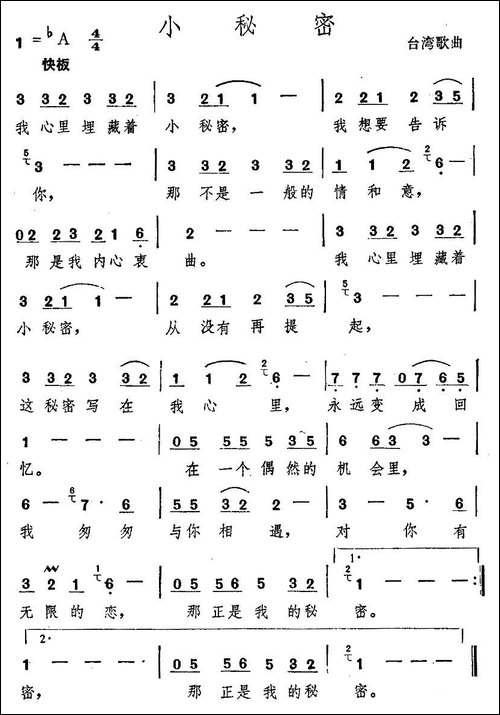 小秘密
1=♭A 4/4
台湾歌曲
快板
3 32 3 32 | 3 21 1 — | 2 21 2 35 |
我 心里 埋 藏着 小 秘密， 我 想要 告诉
5 3 — — — | 3 32 3 32 3 | 1 1 2 2 6 |
你， 那 不是 一 般的 情 和 意，
02 23 21 6 | 2 — — — | 3 32 3 32 |
那是我内心衷 曲。 我 心里 埋 藏着
3 21 1 — | 2 22 2 35 | 5 3 — — — |
小 秘密， 从 没有 再 提 起，
3 32 3 32 | 1 1 2 2 6 | 777 07 65 |
这 秘密 写 在 我 心 里， 永远变 成 回
1 — — — | 05 55 53 35 | 6 63 3 — |
忆。 在 一个 偶然的 机 会里，
6 — 6 7· 6 | 55 33 32 2 | 3 — 5· 6 |
我 匆 匆 与你 相 遇， 对 你 有
3 2 1 1 6 — | 05 56 5 32 | 1· 2 1 — — — :|
无 限 的 恋， 那 正是 我 的秘 密。
2·
1 — — — | 05 56 5 32 | 2 1 — — — |
密， 那 正是 我 的秘 密。